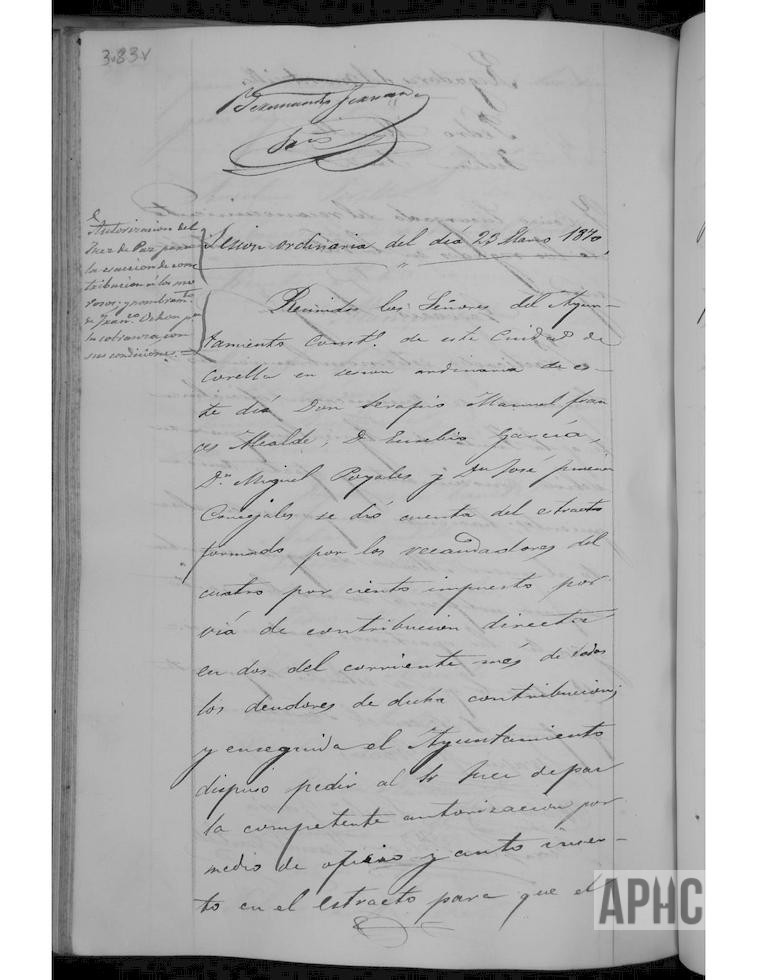 383v
Fernando
Srio
Autorizacion del
Juez de Paz para
la esaccion de con
tribucion á los mo
rosos; y nombramto
de Franco
la cobranza con
sus condiciones.=
Sesion ordinaria del dia 29 Marzo 1870,
Reunidos los Señores del Ayun-
tamiento Constl. de esta Ciudad de
Corella en sesion ordinaria de es-
te dia Don Serapio Manuel Fran
ces Alcalde, D. Eusebio García,
Dn Miguel Poyales y Dn José
Concejales se dió cuenta del estracto
formado por los recaudadores del
cuatro por ciento impuesto por
via de contribucion directa
en dos del corriente més de todos
los deudores de dicha contribucion;
y enseguida el Ayuntamiento
dispuso pedir al Sr Juez de paz
la competente autorizacion por
medio de oficio y auto inser-
to en el estracto para que el
APHC